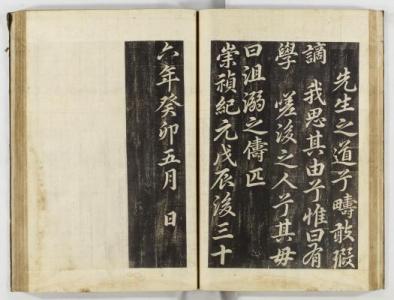 先生之道兮疇敢瑕
謫　我思其由兮惟曰有
學　嗟後之人兮其毋
曰沮溺之儔匹
崇禎紀元戊辰後三十
六年癸卯五月　日